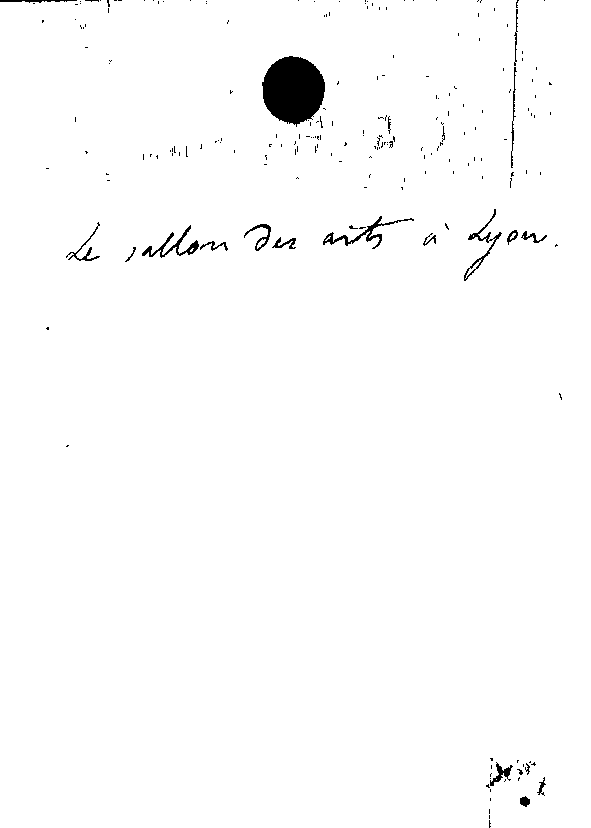 Le sallon des arts à Lyon.